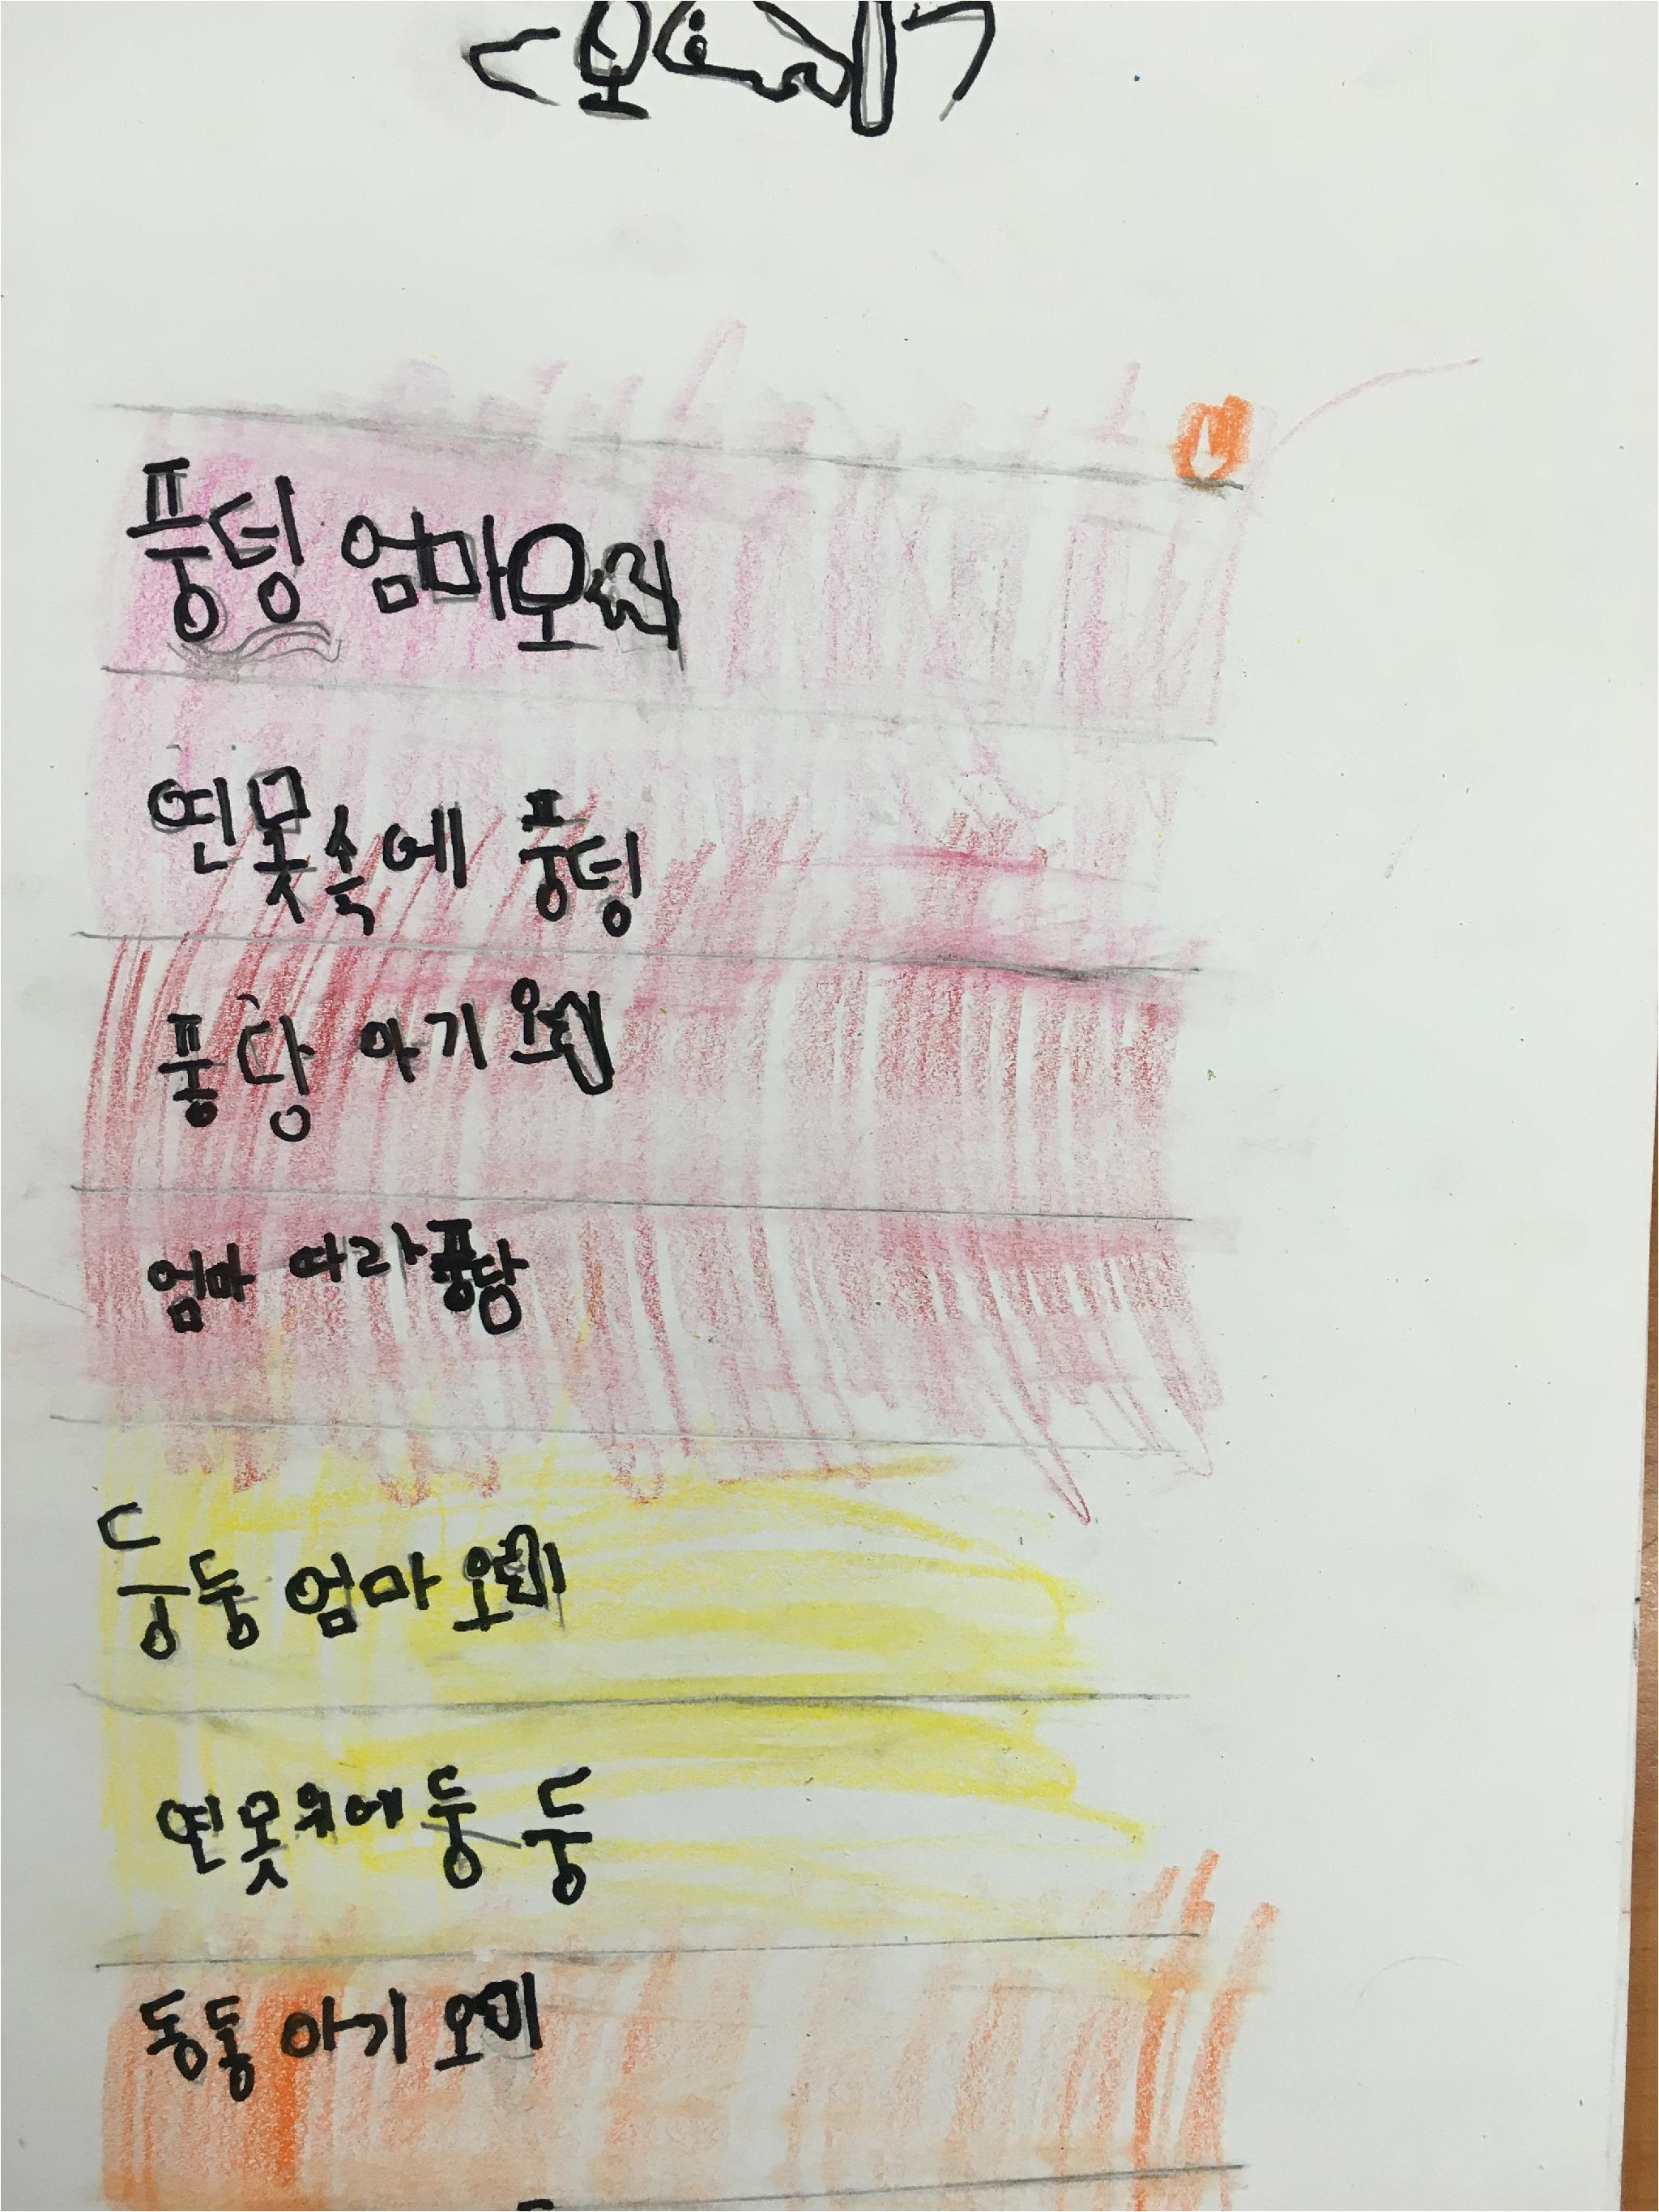 <오리>
풍덩 엄마오리
연못속에 풍덩
퐁당 아기 오리
엄마 따라 퐁당
둥둥 엄마 오리
연못위에 둥 둥
동동 아기 오리